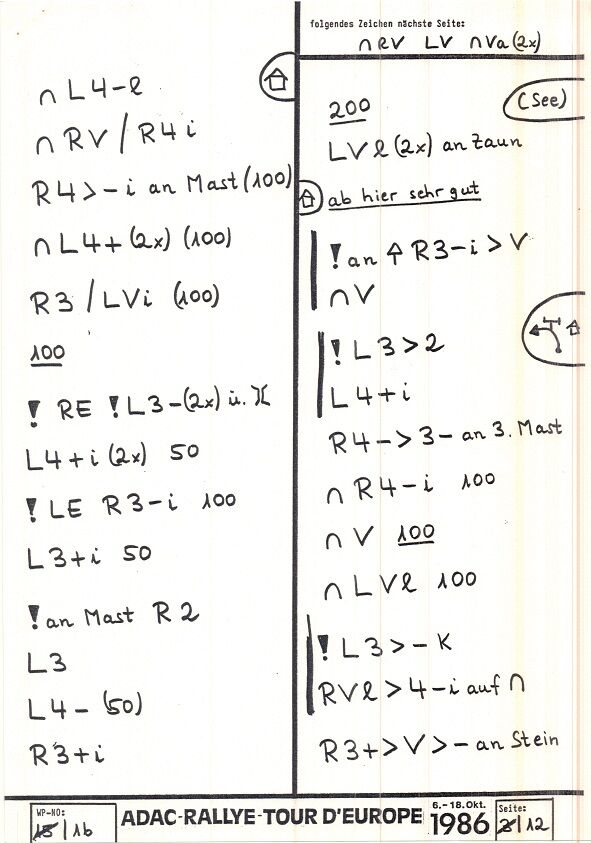 ∩ L4-l
∩ RV / R4 i
R4 > - i an Mast (100)
∩ L4+ (2x) (100)
R3 / LVi (100)
100
! RE ! L3-(2x) ü. )(
L4+i (2x) 50
! LE R3-i 100
L3+i 50
! an Mast R2
L3
L4- (50)
R3+i
folgendes Zeichen nächste Seite:
∩ RV LV ∩ Va (2x)
200
(See)
LVl (2x) an Zaun
ab hier sehr gut
! an ⇧ R3-i > V
∩ V
! L3 > 2
L4+i
R4- > 3- an 3. Mast
∩ R4-i 100
∩ V 100
∩ LVl 100
! L3 > - K
RVl > 4-i auf ∩
R3+ > V > - an Stein
WP-NO:
15/16
ADAC-RALLYE-TOUR D'EUROPE
6.-18.Okt.
1986
Seite:
/12